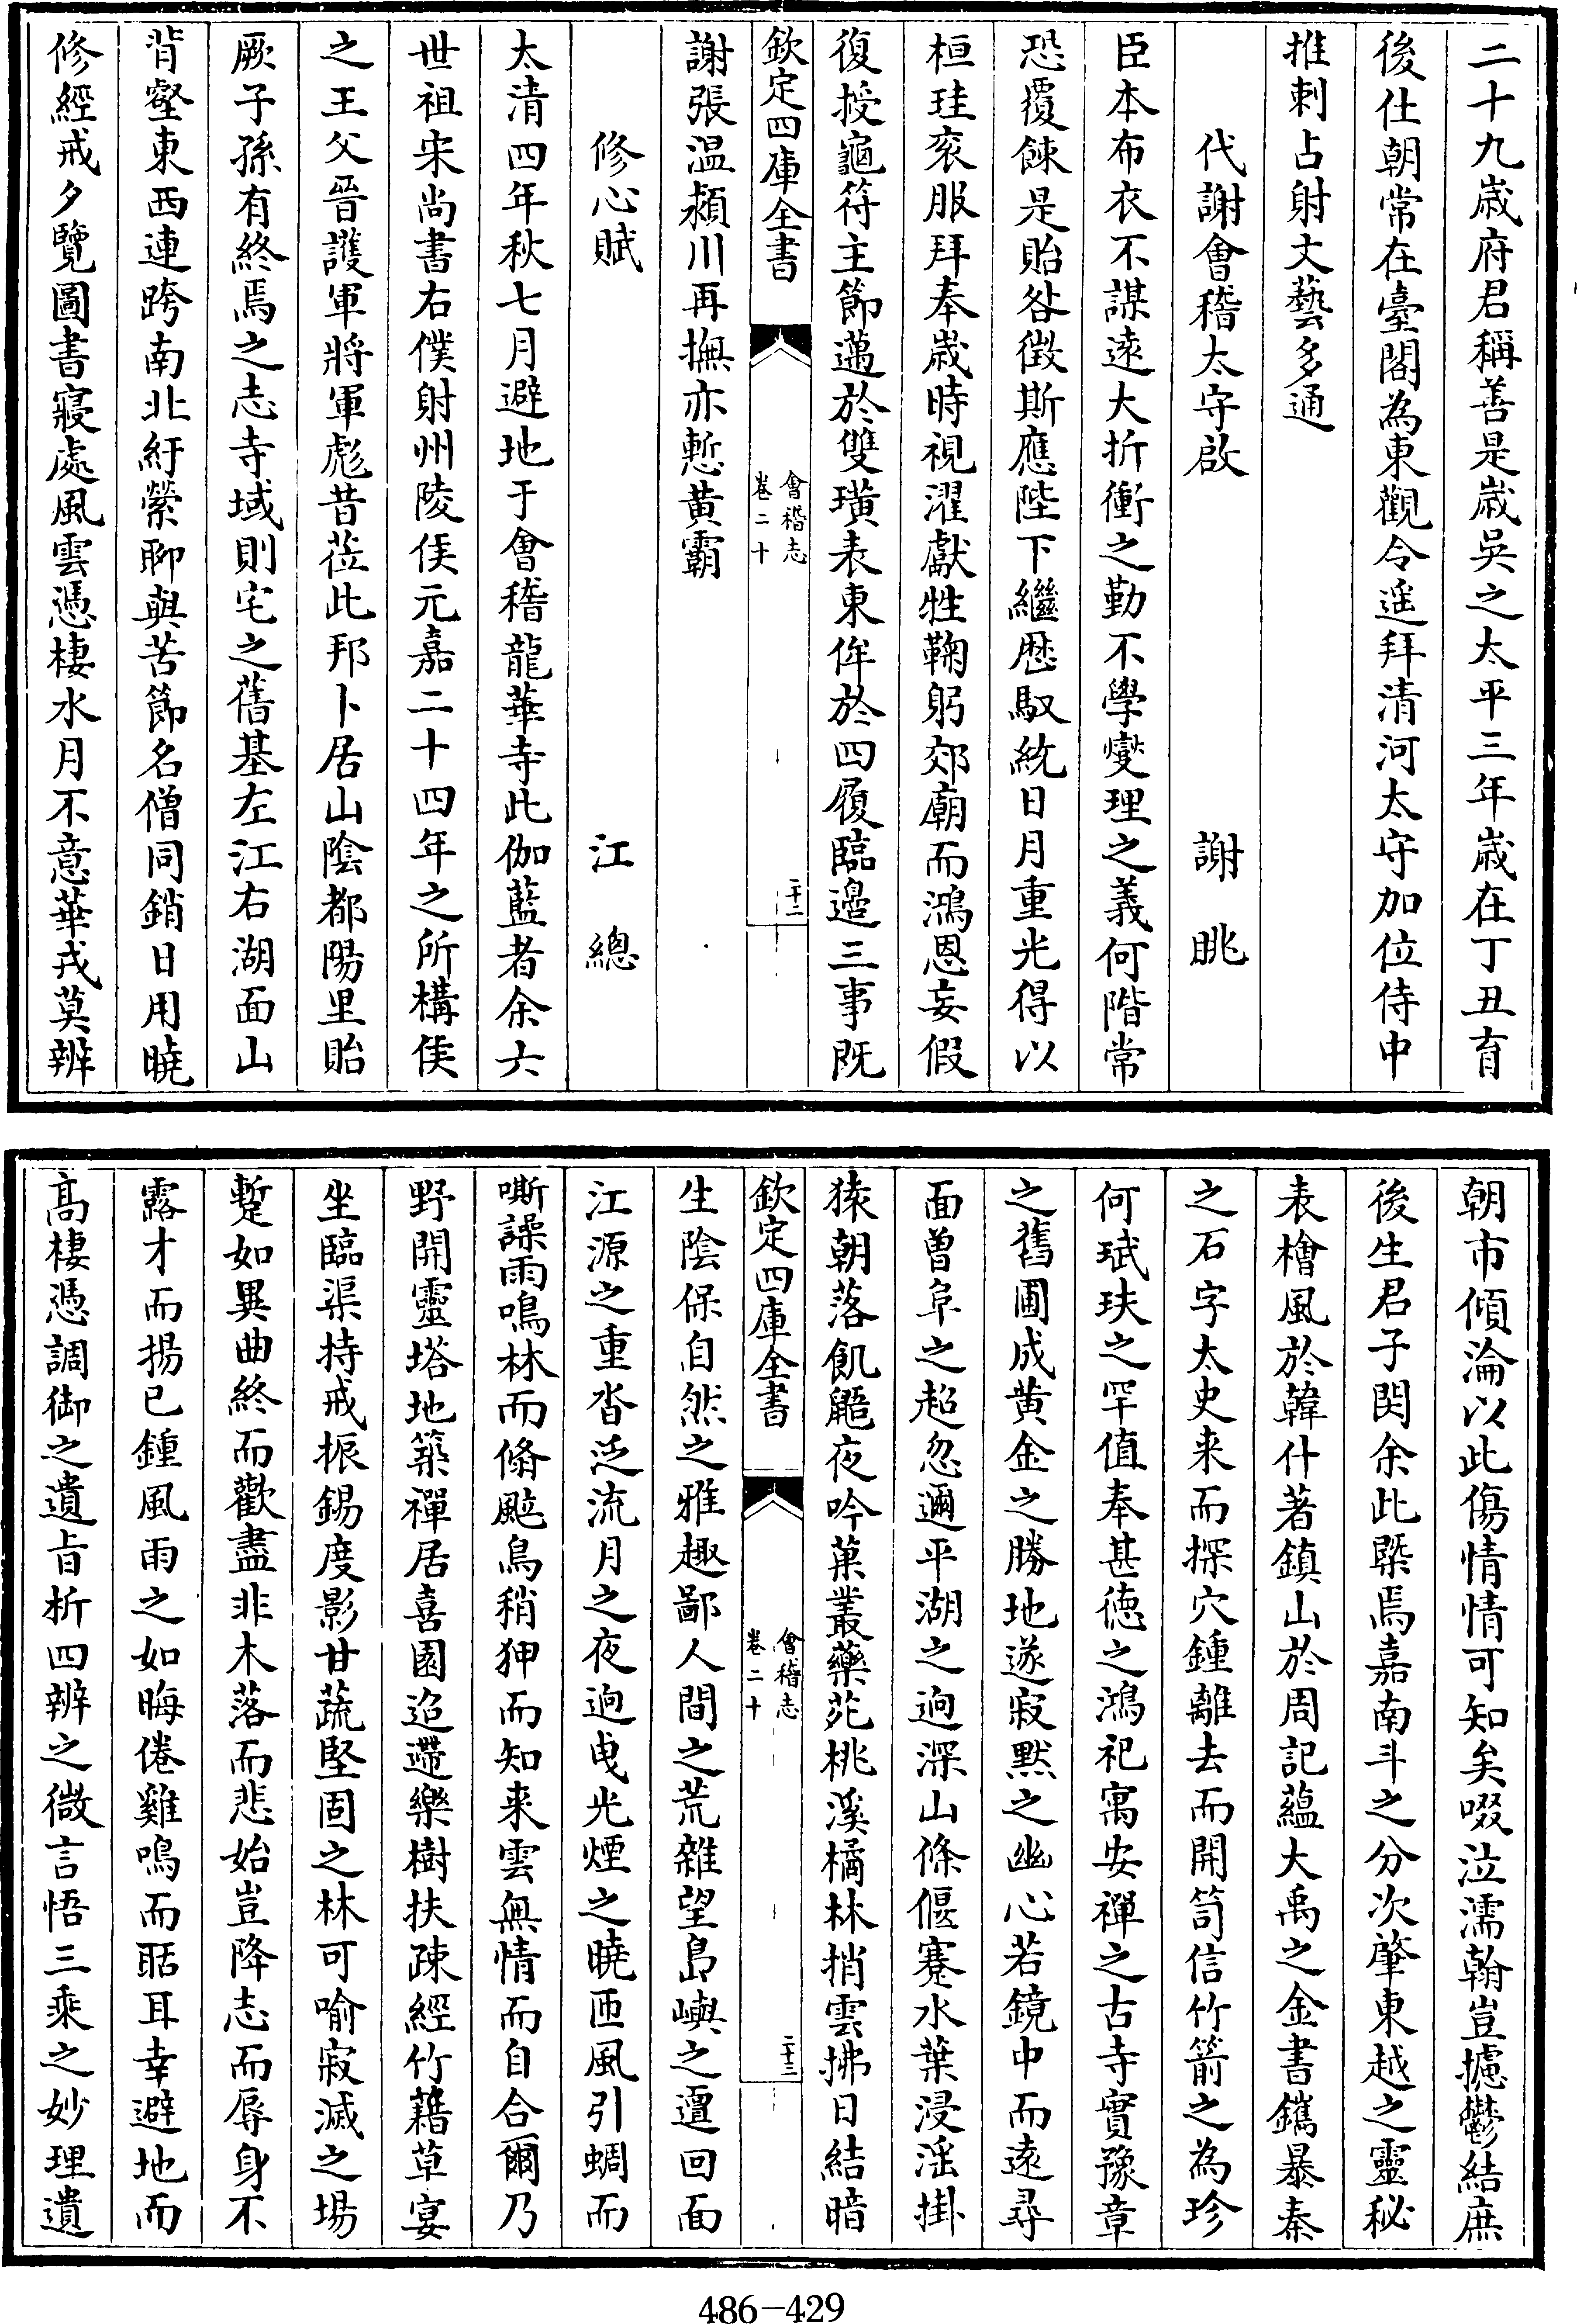 二十九歳府君稱善是歳吳之太平三年歳在丁丑育
後仕朝常在臺閣為東觀令遥拜清河太守加位侍中
推刺占射文藝多通
代謝會稽太守啟
謝朓
臣本布衣不謀遠大折衝之勤不學燮理之義何階常
恐覆餗是貽咎徴斯應陛下繼厯馭統日月重光得以
桓珪衮服拜奉歳時視濯獻牲鞠躬郊廟而鴻恩妄假
復授龜符主節邁於雙璜表東侔於四履臨邉三事既
欽定四庫全書
會稽志
卷二十
二十二
謝張温潁川再撫亦慙黄霸
修心賦
江總
太清四年秋七月避地于㑹稽龍華寺此伽藍者余六
世祖宋尚書右僕射州陵侯元嘉二十四年之所構侯
之王父晉護軍將軍彪昔莅此邦卜居山陰都陽里貽
厥子孫有終焉之志寺域則宅之舊基左江右湖面山
背壑東西連跨南北紆縈聊與苦節名僧同銷日用曉
修經戒夕覽圖書寢處風雲憑棲水月不意華戎莫辨
朝市傾淪以此傷情情可知矣啜泣濡翰豈攄鬱結庶
後生君子閔余此槩焉嘉南斗之分次肇東越之靈秘
表檜風於韓什著鎮山於周記蘊大禹之金書鐫暴秦
之石字太史来而探穴鍾離去而開笥信竹箭之為珍
何珷玞之罕值奉甚徳之鴻祀寓安禪之古寺實豫章
之舊圃成黄金之勝地遂寂黙之幽心若鏡中而遠尋
面曽阜之超忽邇平湖之迥深山條偃蹇水葉浸淫掛
猿朝落飢鼯夜吟菓叢藥苑桃溪橘林捎雲拂日結暗
欽定四庫全書
會稽志
卷二十
二十三
生陰保自然之雅趣鄙人間之荒雜望島嶼之邅回面
江源之重沓泛流月之夜迥曵光煙之曉匝風引蜩而
嘶譟雨鳴林而翛颭鳥稍狎而知来雲無情而自合爾乃
野開靈塔地築禪居喜園迢遰樂樹扶疎經竹藉草宴
坐臨渠持戒振錫度影甘蔬堅固之林可喻寂滅之場
蹔如異曲終而歡盡非木落而悲始豈降志而辱身不
露才而揚已鍾風雨之如晦倦雞鳴而聒耳幸避地而
高棲憑調御之遺旨析四辨之微言悟三乘之妙理遺
486—429